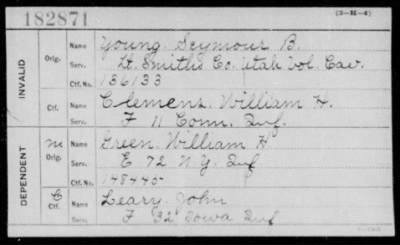 182871
(3-H-4)
INVALID
Orig. Name Young, Seymour B.
Serv. Lt. Smiths Co. Utah Vol. Cav.
Ctf. No. 136133
Ctf. Name Clemens, William H.
Serv. F 11 Conn. Inf.
DEPENDENT
Orig. Name Green, William H.
Serv. E 72 N.Y. Inf
Ctf. No. 148445
Ctf. Name Leary, John
Serv. F 32 Iowa Inf